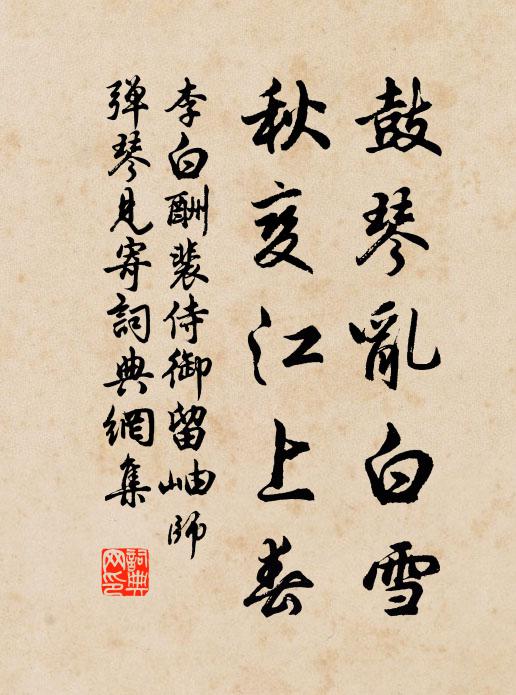 鼓琴亂白雪
秋变江上春
李白酬裴侍御留岫師
弹琴見寄詞典網集
詞典
网印